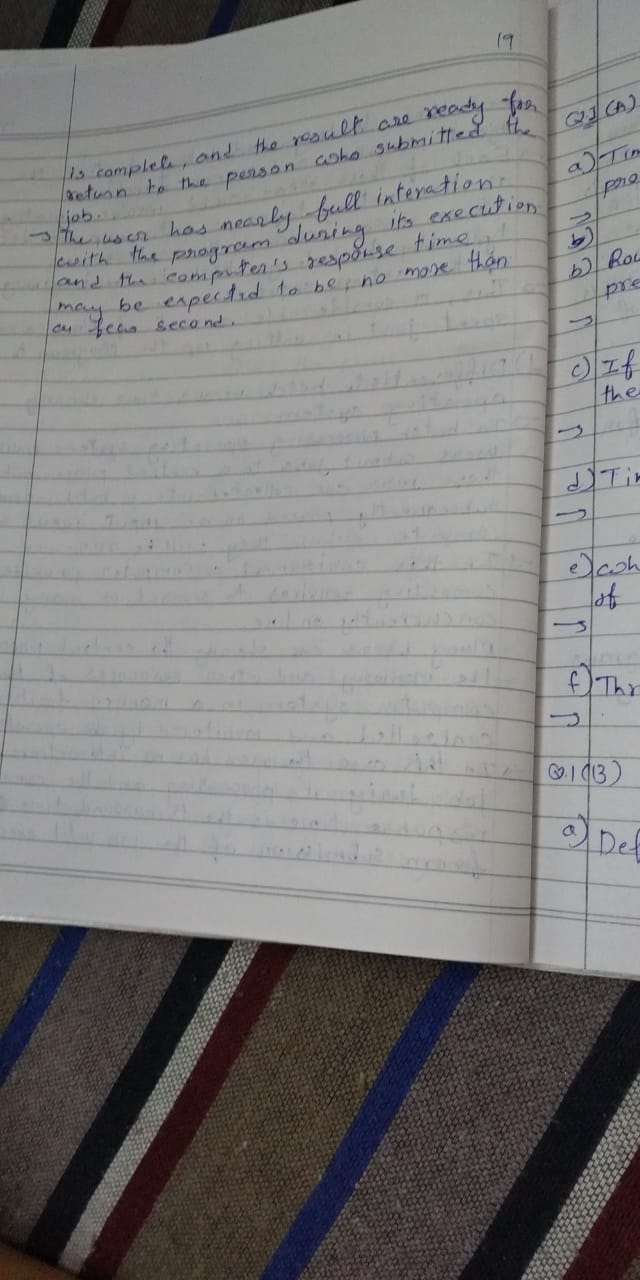 19
is complete, and the result are ready for
return to the person who submitted the
job.
→ The user has nearly full interation
with the program during its execution
and the computer's response time
may be expected to be, no more than
a few second.
Q.1 (A)
a) Tim
pro
→
b)
b) Rou
pre
→
c) If
the
→
d) Tim
→
e) wh
of
→
f) Thr
→
Q.1 (B)
a) Def